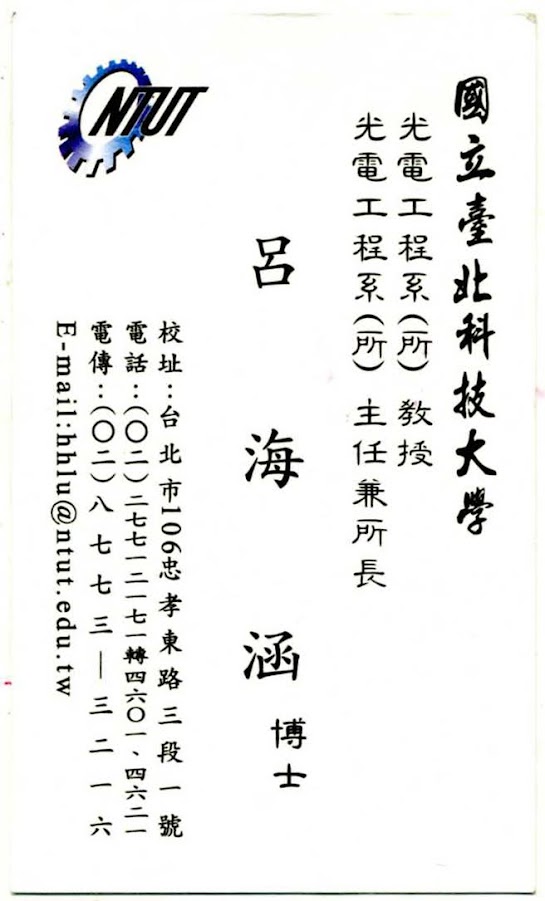 國立臺北科技大學
光電工程系(所) 教授
光電工程系(所) 主任兼所長
呂海涵 博士
校址：台北市106忠孝東路三段一號
電話：(〇二)二七七一二一七一轉四六〇一、四六二一
電傳：(〇二)八七七三—三二一六
E-mail:hhlu@ntut.edu.tw
NTUT